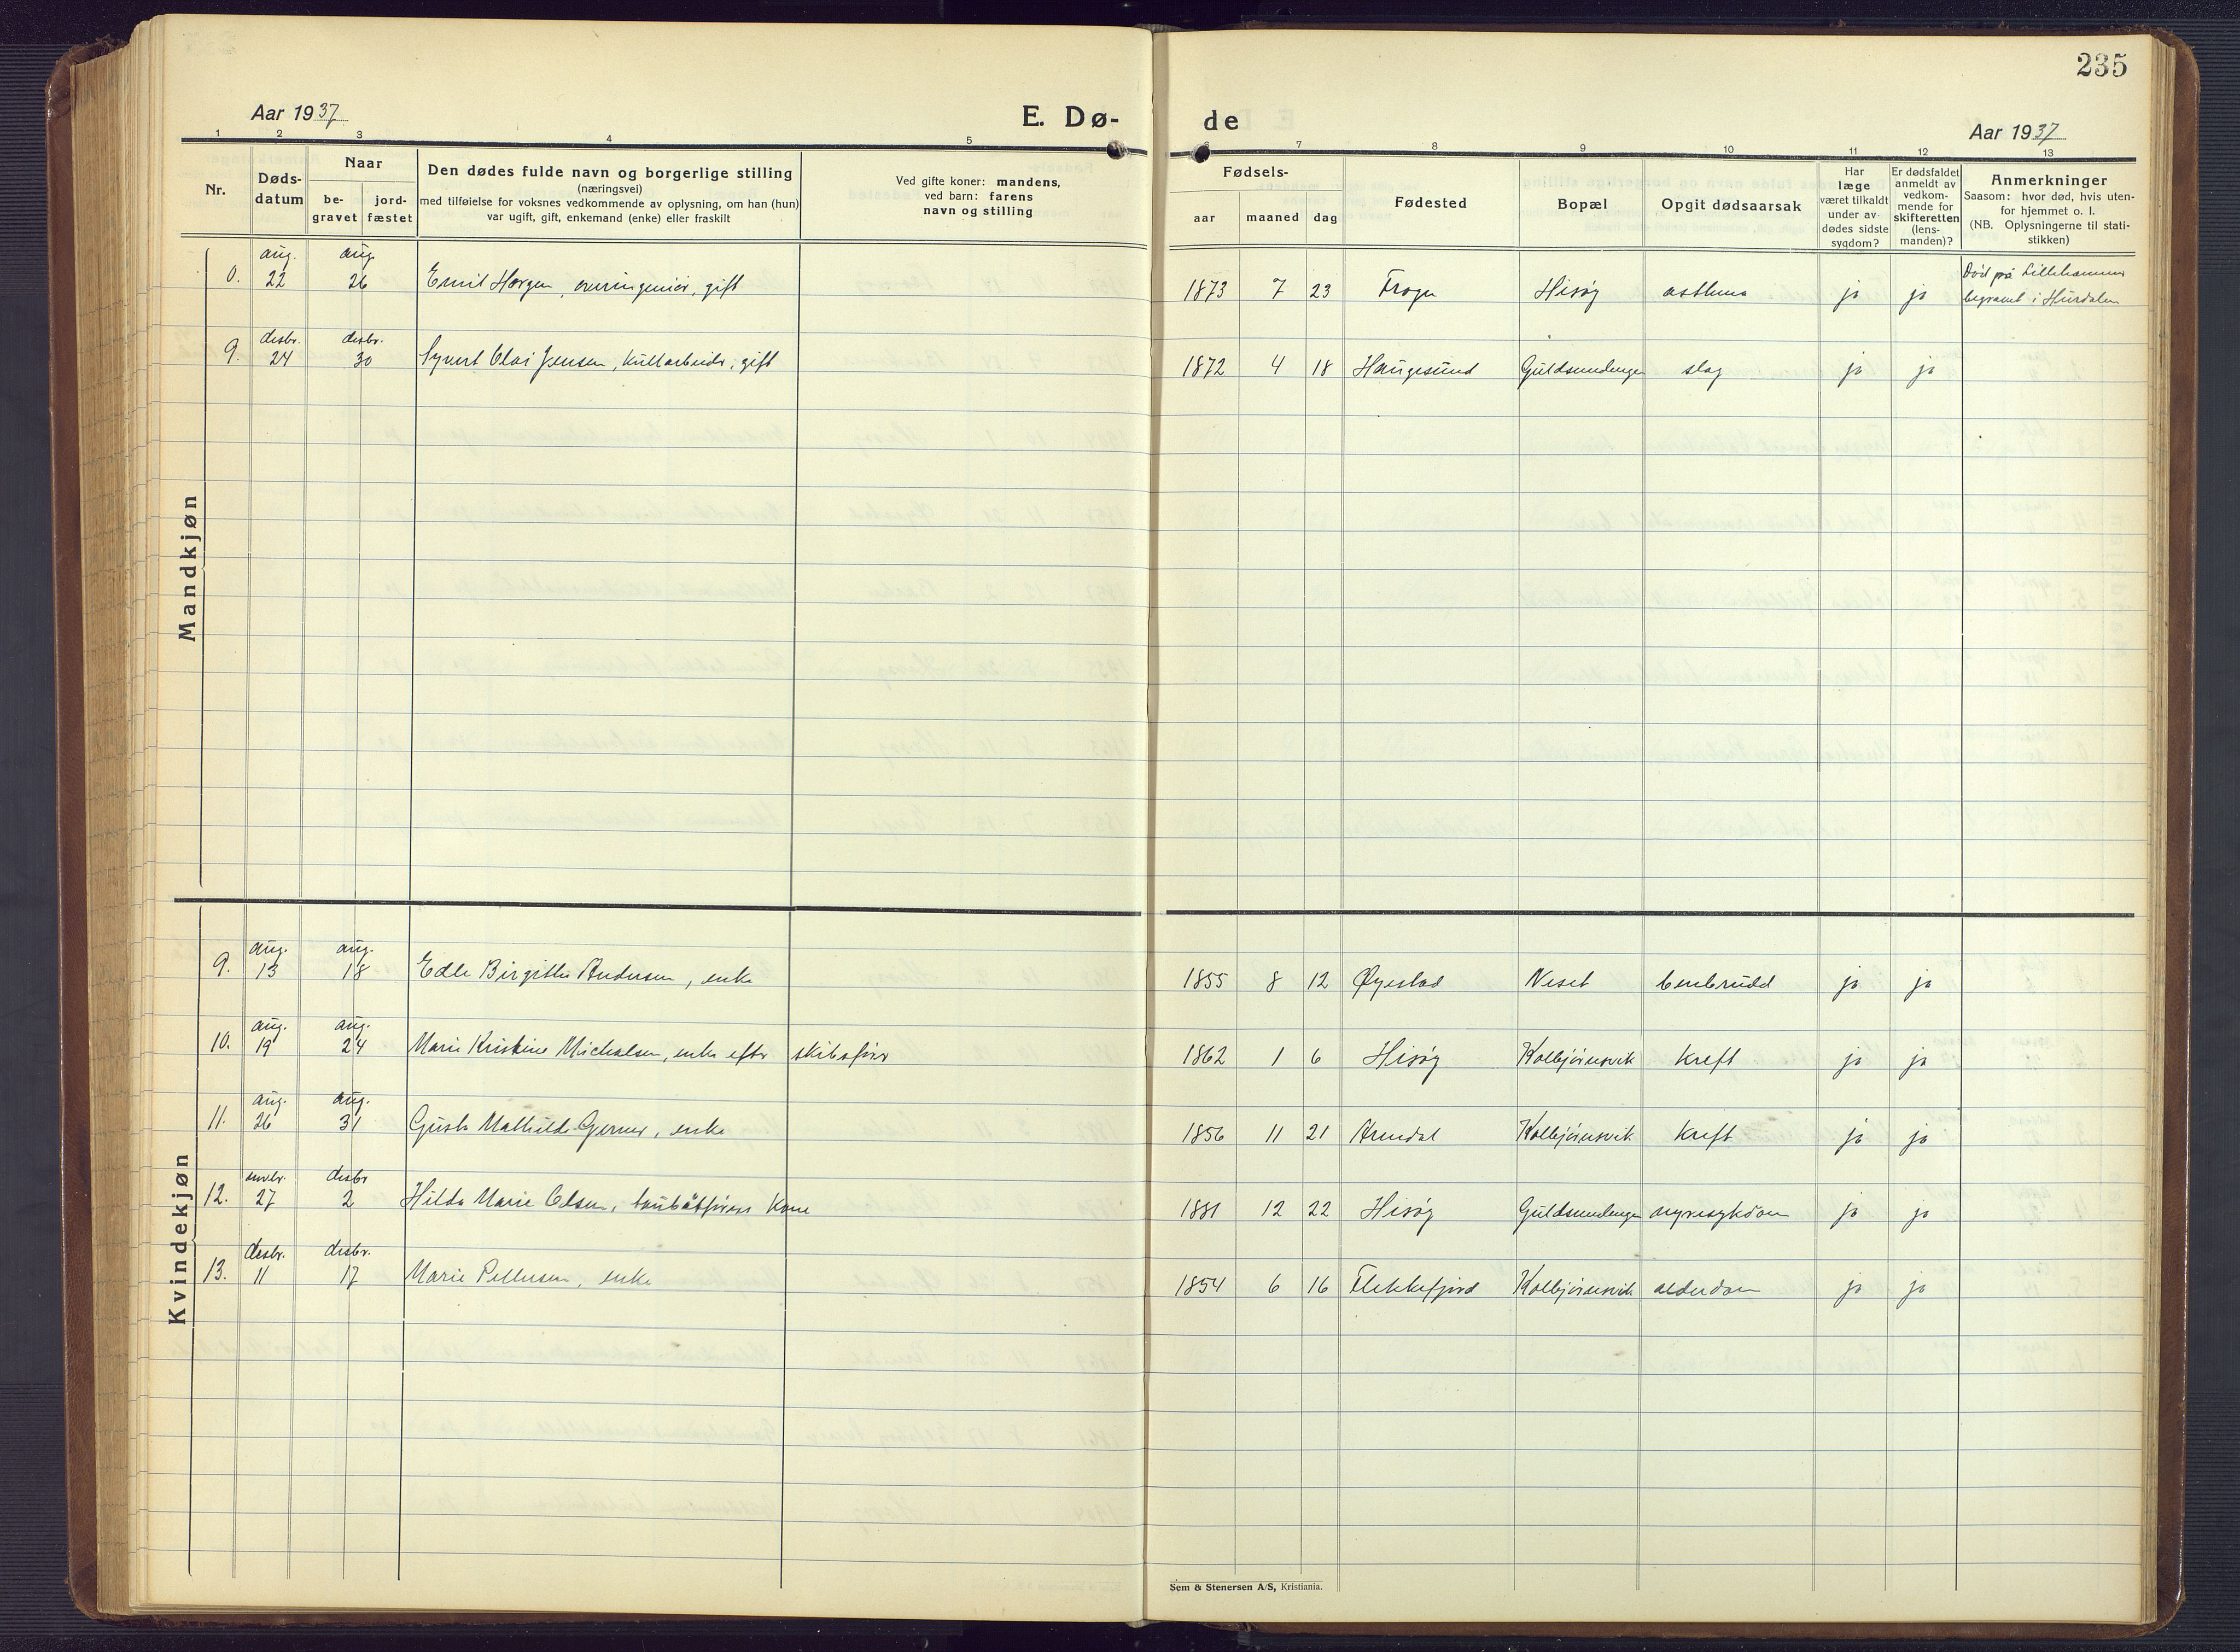 235
Aar 1937
E. Dø-
de
Aar 1937
1 2 3 4 5 6 7 8 9 10 11 12 13
Nr.
Døds-
datum
Naar
be-
gravet
jord-
fæstet
Den dødes fulde navn og borgerlige stilling
(næringsvei)
med tilføielse for voksnes vedkommende av oplysning, om han (hun)
var ugift, gift, enkemand (enke) eller fraskilt
Ved gifte koner: mandens,
ved barn: farens
navn og stilling
Fødsels-
aar maaned dag
Fødested
Bopæl
Opgit dødsaarsak
Har
læge
været tilkaldt
under av-
dødes sidste
sygdom?
Er dødsfaldet
anmeldt av
vedkom-
mende for
skifteretten
(lens-
manden)?
Anmerkninger
Saasom: hvor død, hvis uten-
for hjemmet o. l.
(NB. Oplysningerne til stati-
stikken)
Mandkjøn
aug. aug.
22 26 Emil Horgen, overingeniør, gift 1873 7 23 Frogn Hisøy asthma ja ja Død på Lillehammer
begravet i Hurdalen
desbr. desbr.
9. 24 30 Syvert Olai Jensen, kullarbeider, gift 1872 4 18 Haugesund Guldsmedengen slag ja ja
Kvindekjøn
aug. aug.
9. 13 18 Edle Birgitte Andersen, enke 1855 8 12 Øyestad Neset benbrudd ja ja
aug. aug.
10. 19 24 Marie Kristine Michalsen, enke efter skibsfører 1862 1 6 Hisøy Kolbjørnsvik kreft ja ja
aug. aug.
11. 26 31 Gusta Mathilde Gerner, enke 1856 11 21 Arendal Kolbjørnsvik kreft ja ja
novbr. desbr
12. 27 2 Hilda Marie Olsen, taubåtførers kone 1881 12 22 Hisøy Guldsmedengen nyresykdom ja ja
desbr. desbr.
13. 11 17 Marie Pettersen, enke 1854 6 16 Flekkefjord Kolbjørnsvik alderdom ja ja
Sem & Stenersen A/S, Kristiania.